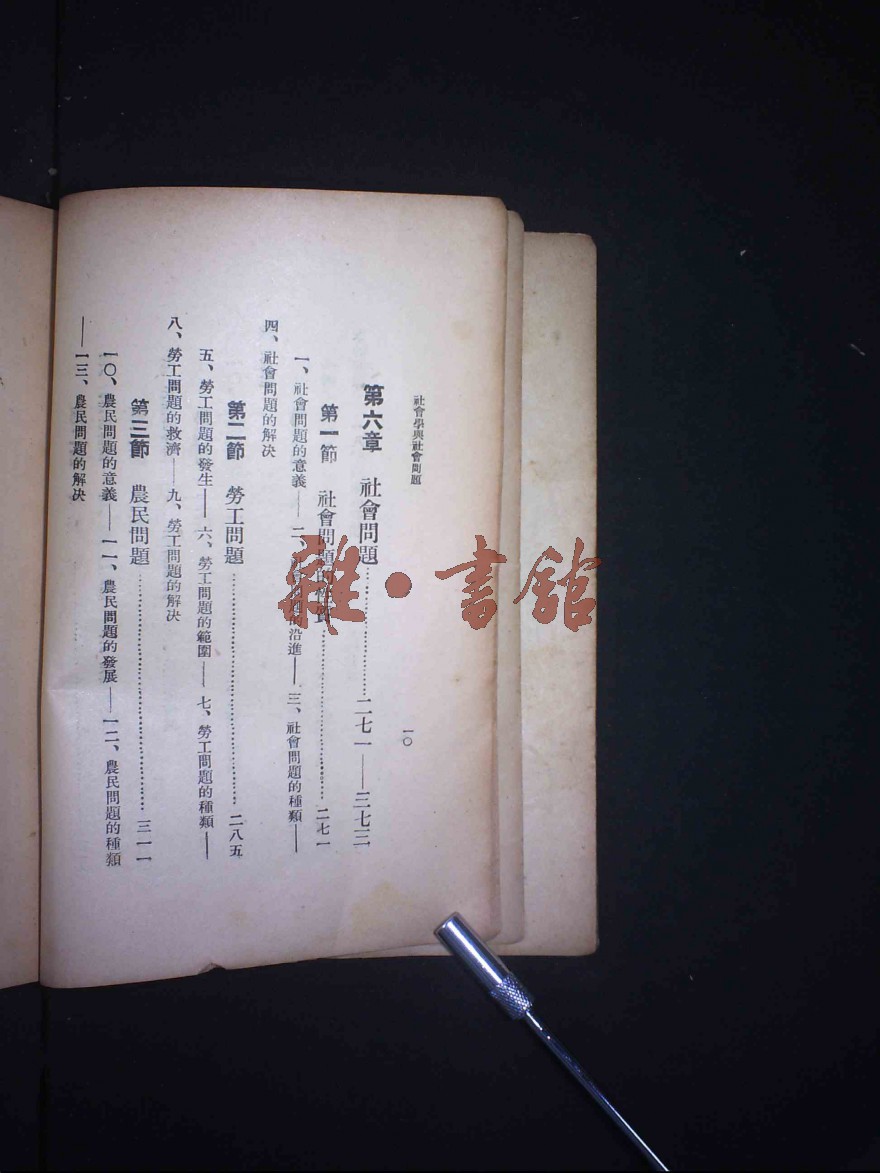 社會學與社會問題
一〇
第六章　社會問題……………………二七一——三七三
第一節　社會問題……………………二七一
一、社會問題的意義——二、沿進——三、社會問題的種類——
四、社會問題的解決
第二節　勞工問題……………………二八五
五、勞工問題的發生——六、勞工問題的範圍——七、勞工問題的種類——
八、勞工問題的救濟——九、勞工問題的解決
第三節　農民問題……………………三一一
一〇、農民問題的意義——一一、農民問題的發展——一二、農民問題的種類
——一三、農民問題的解決
雜·書館